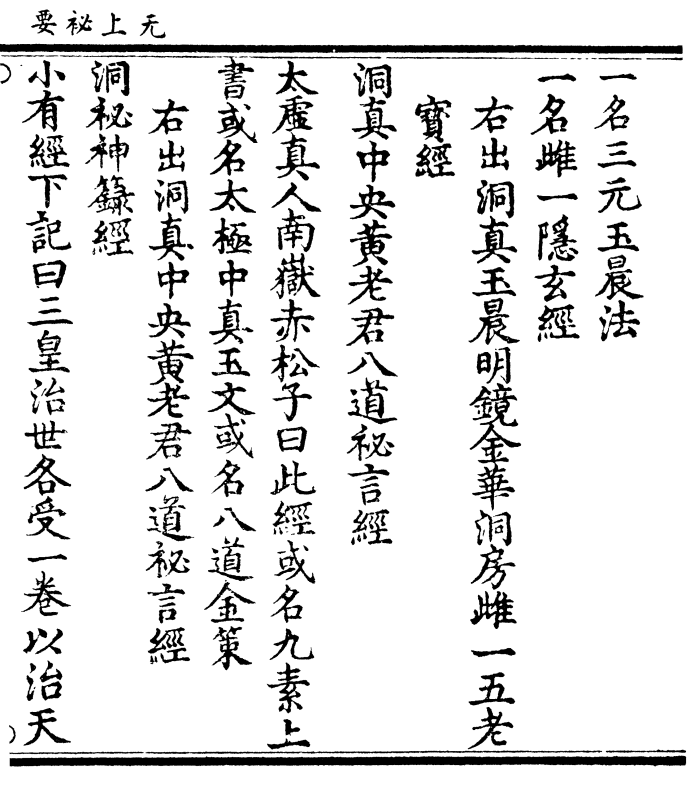 无上祕要
一名三元玉晨法
一名雌一隱玄經
右出洞真玉晨明鏡金華洞房雌一五老
寶經
洞真中央黄老君八道祕言經
太虛真人南嶽赤松子曰此經或名九素上
書或名太極中真玉文或名八道金策
右出洞真中央黄老君八道祕言經
洞祕神籙經
小有經下記曰三皇治世各受一卷以治天